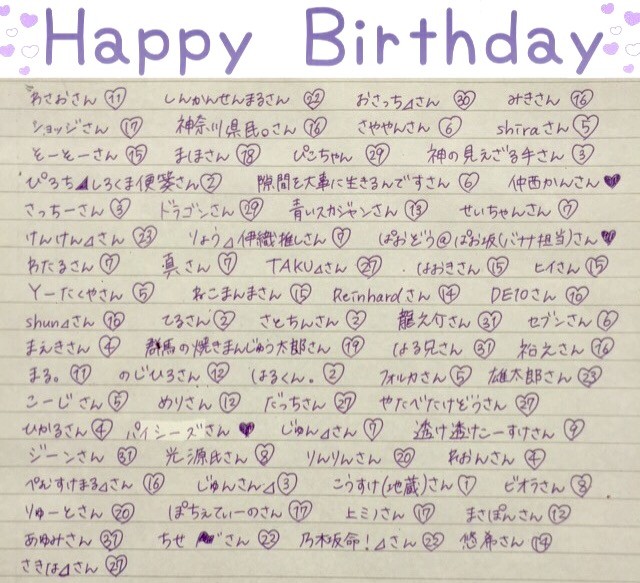 Happy Birthday
あさおさん 11 しんかんせんまるさん 22 おさっち⊿さん 30 みきさん 16
ショッジさん 17 神奈川県民。さん 16 さややんさん 6 shiraさん 5
そーそーさん 15 まほさん 18 ぴこちゃん 29 神の見えざる手さん 3
ぴろち⊿しろくま便箋さん 2 隙間を大事に生きるんですさん 6 仲西かんさん
さっちーさん 3 ドラゴンさん 29 青いスカジャンさん 13 せいちゃんさん 7
けんけん⊿さん 23 りょう⊿伊織推しさん 7 ぱおどう@ぱお坂(バナナ担当)さん
わたるさん 7 真さん 7 TAKU⊿さん 27 はおきさん 15 ヒイさん 15
Yーたくやさん 5 ねこまんまさん 15 Reinhardさん 14 DE10さん 10
shun⊿さん 16 てるさん 2 さとちんさん 2 龍之介さん 31 セブンさん 6
まえきさん 4 群馬の焼きまんじゅう太郎さん 19 はる兄さん 31 裕えさん 16
まる。 11 のじひろさん 12 はるくん。 2 フォルカさん 5 雄太郎さん 23
こーじさん 5 めりさん 12 だっちさん 27 やたべたけどうさん 27
ひかるさん 4 パイシーズさん じゅん⊿さん 7 透け透けこーすけさん 9
ジーンさん 31 光源氏さん 8 りんりんさん 20 れおんさん 4
ぺむすけまる⊿さん 16 じゅんさん⊿ 3 こうすけ(地蔵)さん 1 ビオラさん 8
りゅーとさん 20 ぽちぇてぃーのさん 17 ヒミノさん 17 まさぽんさん 12
あゆみさん 31 ちせ さん 22 乃木坂命!⊿さん 25 悠希さん 14
さきは⊿さん 27